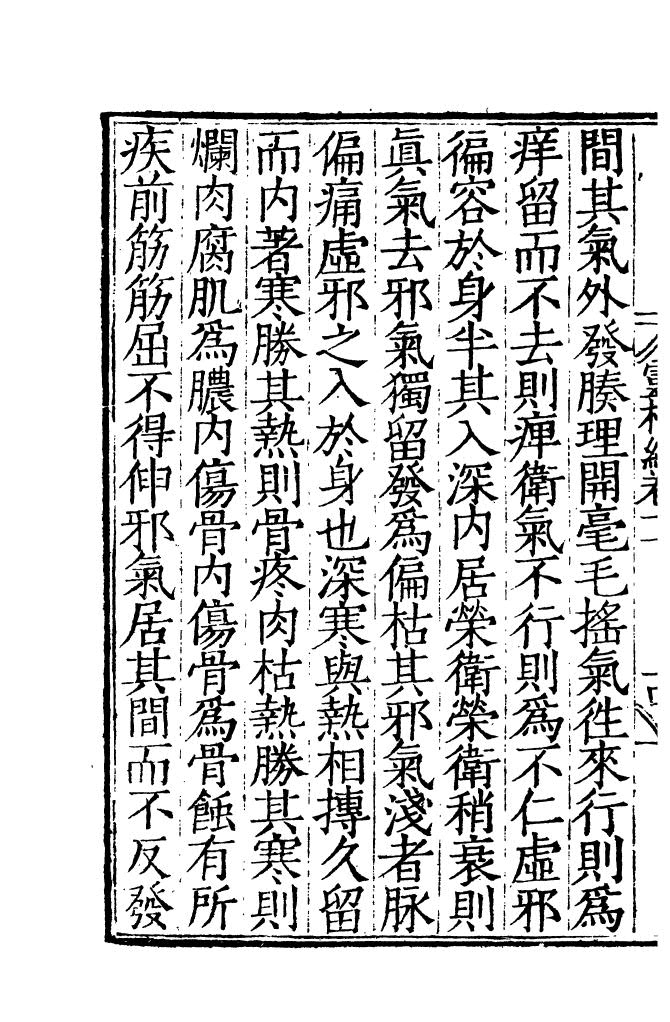 靈樞經卷
間其氣外發腠理開毫毛搖氣徃來行則爲
痒留而不去則痺衛氣不行則爲不仁虛邪
徧容於身半其入深内居榮衛榮衛稍衰則
眞氣去邪氣獨留發爲偏枯其邪氣淺者脉
偏痛虛邪之入於身也深寒與熱相摶久留
而内著寒勝其熱則骨疼肉枯熱勝其寒則
爛肉腐肌爲膿内傷骨内傷骨爲骨蝕有所
疾前筋筋屈不得伸邪氣居其間而不反發